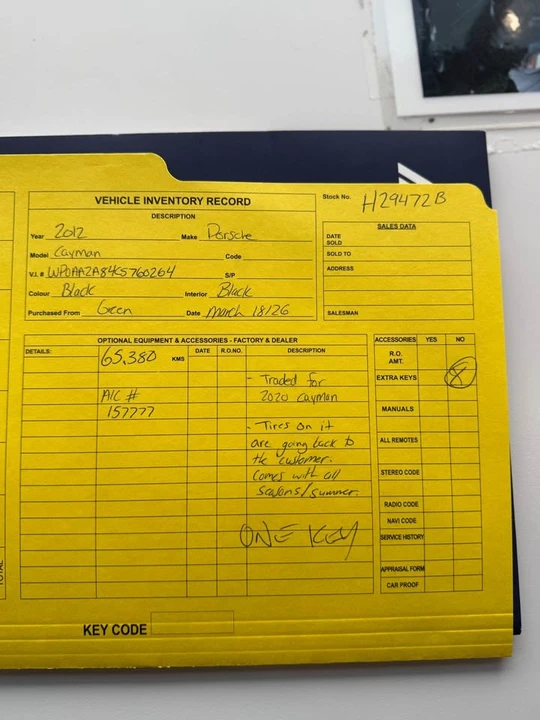 VEHICLE INVENTORY RECORD
Stock No. H29472B
DESCRIPTION
Year 2012 Make Porsche
Model Cayman Code
V.I. # WP0AA2A84CS760264 S/P
Colour Black Interior Black
Purchased From Green Date March 18/26
SALES DATA
DATE SOLD
SOLD TO
ADDRESS
SALESMAN
OPTIONAL EQUIPMENT & ACCESSORIES - FACTORY & DEALER
DETAILS: 65,380 KMS DATE R.O.NO. DESCRIPTION
A/C #
157777
- Traded for
2020 Cayman
- Tires on it
are going back to
the customer.
Comes with all
seasons/summer.
ONE KEY
ACCESSORIES YES NO
R.O. AMT.
EXTRA KEYS X
MANUALS
ALL REMOTES
STEREO CODE
RADIO CODE
NAVI CODE
SERVICE HISTORY
APPRAISAL FORM
CAR PROOF
KEY CODE
TOTAL